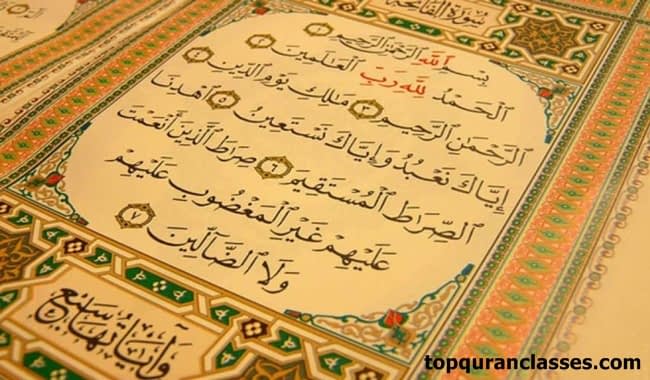 سُورَةُ الفَاتِحَةِ
بِسْمِ ٱللَّهِ ٱلرَّحْمَٰنِ ٱلرَّحِيمِ ١
ٱلْحَمْدُ لِلَّهِ رَبِّ ٱلْعَٰلَمِينَ ٢
ٱلرَّحْمَٰنِ ٱلرَّحِيمِ ٣ مَٰلِكِ يَوْمِ ٱلدِّينِ ٤
إِيَّاكَ نَعْبُدُ وَإِيَّاكَ نَسْتَعِينُ ٥ ٱهْدِنَا
ٱلصِّرَٰطَ ٱلْمُسْتَقِيمَ ٦ صِرَٰطَ ٱلَّذِينَ أَنْعَمْتَ
عَلَيْهِمْ غَيْرِ ٱلْمَغْضُوبِ عَلَيْهِمْ
وَلَا ٱلضَّآلِّينَ ٧
وَآيَاتُهَا سَبْعٌ
topquranclasses.com